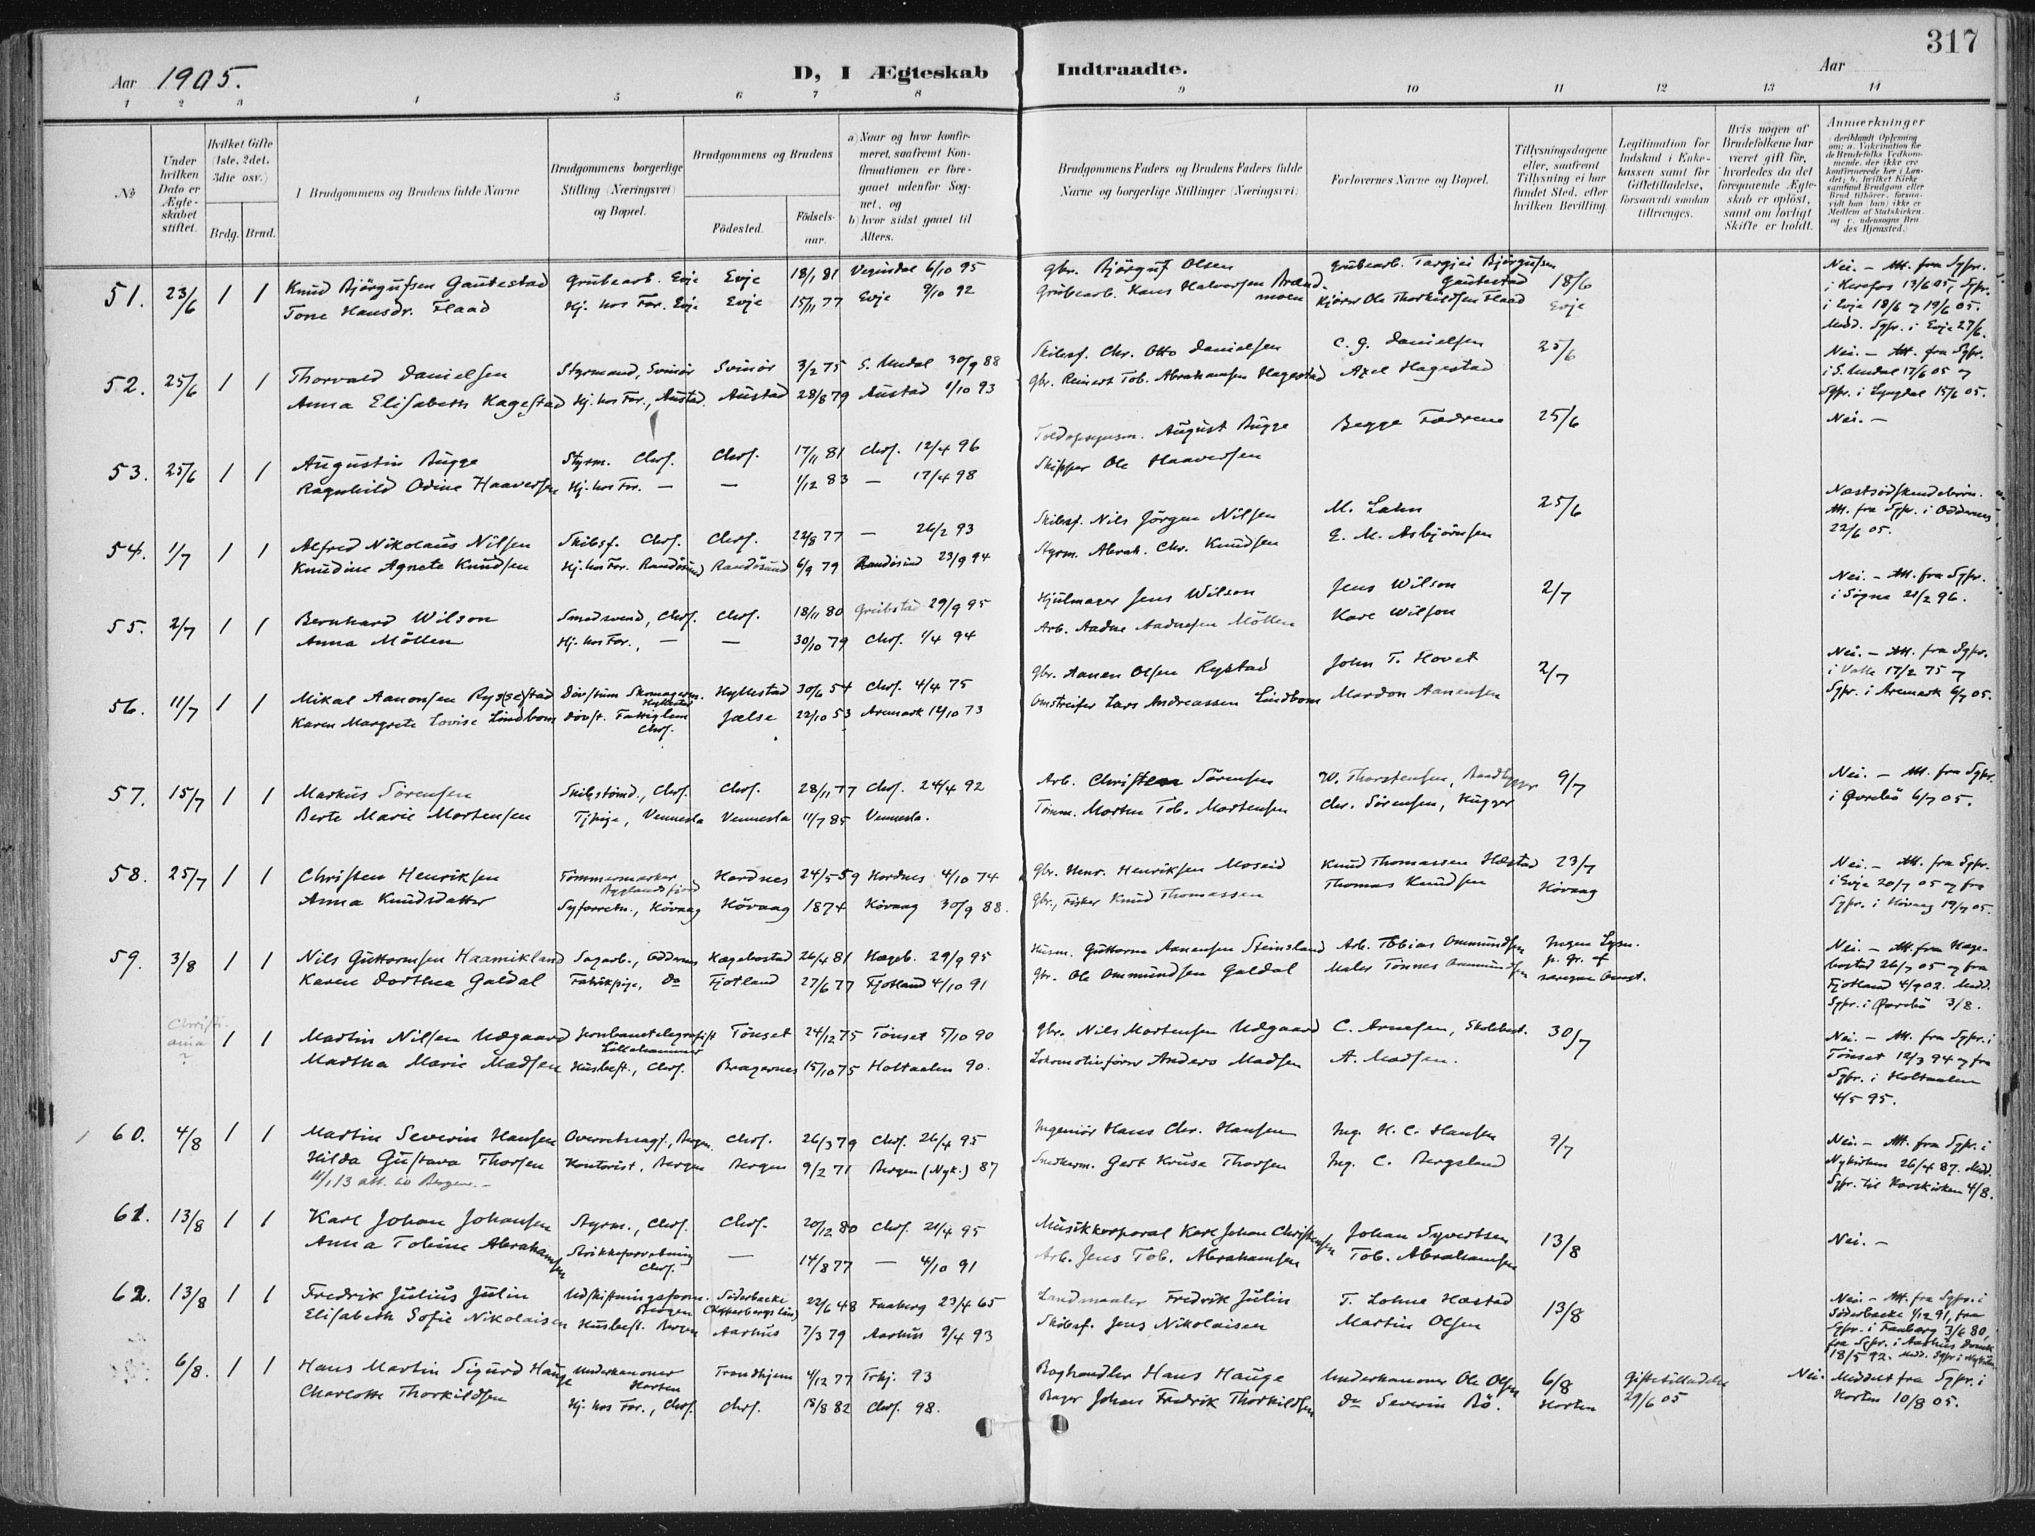 317
Aar 1905. D, I Ægteskab Indtraadte. Aar
1 2 3 4 5 6 7 8 9 10 11 12 13 14
No
Under hvilken Dato er Ægteskabet stiftet.
Hvilket Gifte (1ste, 2det, 3die osv.)
Brdg. Brud.
Brudgommens og Brudens fulde Navne
Brudgommens borgerlige Stilling (Næringsvei) og Bopæl.
Brudgommens og Brudens
Födested. Födselsaar.
a) Naar og hvor konfirmeret, saafremt Konfirmationen er foregaaet udenfor Sognet, og
b) hvor sidst gaaet til Alters.
Brudgommens Faders og Brudens Faders fulde Navne og borgerlige Stillinger (Næringsvei)
Forlovernes Navne og Bopæl.
Tillysningsdagene eller, saafremt Tillysning ei har fundet Sted, efter hvilken Bevilling.
Legitimation for Indskud i Enkekassen samt for Giftetilladelse, forsaavidt saadan tiltrænges.
Hvis nogen af Brudefolkene har været gift för, hvorledes da det foregaaende Ægteskab er oplöst, samt om lovligt Skifte er holdt.
Anmærkninger
51. 23/6 1 1 Knud Björgufsen Gautestad Grubearb. Evje Evje 18/1 81 Vegusdal 6/10 95 Gbr. Björguf Olsen Grubearb. Targjei Björgufsen Gautestad 18/6 Evje Nei. - Att. fra Sgpr.
Tone Hansdr. Flaad Hj. hos For. Evje Evje 15/11 77 Evje 9/10 92 Grubearb. Hans Halvorsen Kjører Ole Thorkildsen Flaad i Herefos 13/6 05, Sgpr.
i Evje 18/6 og 19/6 05.
Medd. Sgpr. i Evje 27/6.
52. 25/6 1 1 Thorvald Danielsen Styrmand, Svinör Svinör 3/2 75 S. Undal 30/9 88 Skibsf. Chr. Otto Danielsen C. G. Danielsen 25/6 Nei. - Att. fra Sgpr.
Anna Elisabeth Hagestad Hj. hos For., Austad Austad 28/8 79 Austad 1/10 93 Gbr. Reinert Tob. Abrahamsen Hagestad Axel Hagestad i S. Undal 17/6 05 og
Sgpr. i Lyngdal 15/6 05.
53. 25/6 1 1 Augustin Bugge Styrm. Chrs. Chrs. 17/11 81 Chrs. 12/4 96 August Bugge Begge Fædrene 25/6 Nei. -
Ragnhild Odine Haaversen Hj. hos For. - - 1/12 83 - 17/4 98 Skipper Ole Haaversen
54. 1/7 1 1 Alfred Nikolaus Nilsen Skibsf. Chrs. Chrs. 22/8 77 - 26/2 93 Skibsf. Nils Jörgen Nilsen M. Lahn 25/6 Næstsødskendebörn.
Knudine Agnete Knudsen Hj. hos For. Randösund Randösund 6/9 79 Randösund 23/9 94 Styrm. Abrah. Chr. Knudsen E. M. Asbjörnsen Att. fra Sgpr. i Oddernes
22/6 05.
55. 2/7 1 1 Bernhard Wilson Smedsvend, Chrs. Chrs. 18/11 80 Greibstad 29/9 95 Hjulmager Jens Wilson Jens Wilson 2/7 Nei. - Att. fra Sgpr.
Anna Möllen Hj. hos For., - - 30/10 79 Chrs. 1/4 94 Arb. Aadne Aadnesen Möllen Kare Wilson i Sögne 21/2 96.
56. 11/7 1 1 Mikal Aanonsen Rysstad Døvstum Skomagerm. Hyllestad Hyllestad 30/6 54 Chrs. 4/4 75 Gbr. Aanon Olsen Rystad John T. Hovet 2/7 Nei. - Att. fra Sgpr.
Karen Margrete Lovise Lindbom Døvst. Fattiglem Chrs. Jælse 22/10 53 Aremark 12/10 73 Omstreifer Lars Andreassen Lindbom Mardon Aanensen i Valle 17/2 75 og
Sgpr. i Aremark 6/7 05.
57. 15/7 1 1 Markus Sörensen Skibstömd., Chrs. Chrs. 28/11 77 Chrs. 24/4 92 Arb. Christen Sörensen W. Thorstensen, Baadbygger 9/7 Nei. - Att. fra Sgpr.
Berte Marie Mortensen Tjpige, Vennesla Vennesla 11/7 85 Vennesla. Tömm. Morten Tob. Mortensen Chr. Sörensen, Hugger i Øvrebö 6/7 05.
58. 25/7 1 1 Christen Henriksen Tømmermærker Byglandsfjord Hordnes 24/5 59 Hordnes 4/10 74 Gbr. Henr. Henriksen Moseid Knud Thomassen Hæstad 23/7 Nei. - Att. fra Sgpr.
Anna Knudsdatter Syforretn., Hövaag Hövaag 1874 Hövaag 30/9 88. Gbr., Fisker Knud Thomassen Thomas Knudsen Hövaag i Evje 20/7 05 og fra
Sgpr. i Hövaag 19/7 05.
59. 3/8 1 1 Nils Guttormsen Haamikland Sagarb., Oddernes Hægebostad 26/4 81 Hægeb. 29/9 95 Husm. Guttorm Aanensen Steinsland Arb. Tobias Ommundsen Ingen Lysn. Nei. - Att. fra Hægebostad
Karen Dorthea Galdal Fabrikpige, Do Fjotland 27/6 77 Fjotland 4/10 91 Gbr. Ole Ommundsen Galdal Maler Tönnes Ommundsen 26/7 05 og fra
Fjotland 4/9 02. Medd.
Sgpr. i Øvrebö 3/8.
Christiania? 1 1 Martin Nilsen Udgaard Jernbanetelegrafist Lillehammer Tönset 24/12 75 Tönset 5/10 90 Gbr. Nils Mortensen Udgaard C. Arnesen, Skolebest. 30/7 Nei. - Att. fra Sgpr. i
Martha Marie Madsen Husbest., Chrs. Bragernes 15/10 75 Holtaalen 90. Lokomotivförer Anders Madsen A. Madsen. Tönset 12/3 94 og fra
Sgpr. i Holtaalen
4/5 95.
60. 4/8 1 1 Martin Severin Hansen Overretssagf., Bergen. Chrs. 26/3 79 Chrs. 26/4 95 Ingeniör Hans Chr. Hansen Ing. H. C. Hansen 9/7 Nei. - Att. fra Sgpr. i
Hilda Gustava Thorsen Kontorist, Bergen Bergen 9/2 71 Bergen (Nyk.) 87 Snedkerm. Gert Kruse Thorsen Ing. C. Bergsland Nykirken 26/4 87. Medd.
11/1 13 att. to Bergen. - Sgpr. til Korskirken 4/8.
61. 13/8 1 1 Karl Johan Johansen Styrm., Chrs. Chrs. 20/12 80 Chrs. 21/4 95 Musikkorporal Karl Johan Christensen Johan Syvertsen 13/8 Nei. -
Anna Tobine Abrahamsen Strikkeforretning Chrs. - 14/8 77 - 4/10 91 Arb. Jens Tob. Abrahamsen Tob. Abrahamsen
62. 13/8 1 1 Fredrik Julius Julin Udskiftningsform. Bergen Söderbacke 22/6 48 Faaberg 23/4 65 Landmaaler Fredrik Julin T. Lohne Hæstad 13/8 Nei. - Att. fra Sgpr. i
Elisabeth Sofie Nikolaisen Husbest. Bergen Aarhus 7/3 79 Aarhus 9/4 93 Skibsf. Jens Nikolaisen Martin Olsen Söderbacke 1/12 91, fra
Sgpr. i Faaberg 3/6 80,
fra Sgpr. i Aarhus Domk.
18/5 92. Medd. Sgpr i
6/8. 1 1 Hans Martin Sigurd Hauge Underkanoner Horten Trondhjem 4/12 77 Trhj. 93 Boghandler Hans Hauge Underkanoner Ole Olsen 6/8 Giftetilladelse Nei. Meddelt fra Sgpr. i
Charlotte Thorkildsen Hj. hos For., Chrs. Chrs. 18/8 82 Chrs. 98. Bager Johan Fredrik Thorkildsen Do Severin Bö. Horten 29/6 05 Horten 10/8 05.